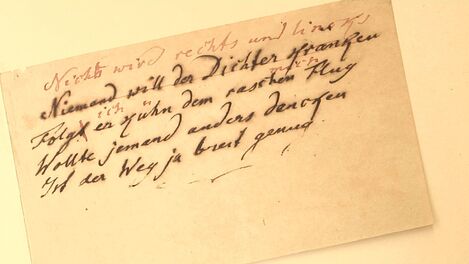 Nichts wird rechts und lincks
Niemand will der Dichter kränken
ich
Folgt er kühn dem raschen Flug
Wollte jemand anders dencken
Ist der Weg ja breit genug.